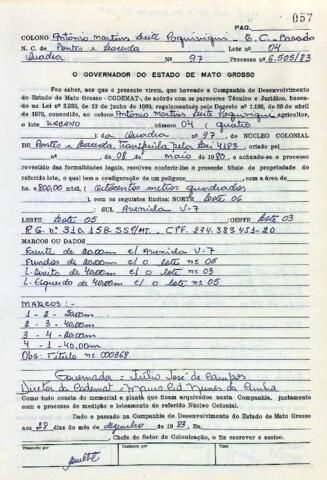 PAG. 057
COLONO Antônio Martins Leite Poquiviqui - E.C. - Passado
N. C. de Pontes e Lacerda Lote nº 04
Quadra Nº 97 Processo nº 6.505/83
O GOVERNADOR DO ESTADO DE MATO GROSSO
Faz saber, aos que a presente virem, que havendo a Companhia de Desenvolvimento
do Estado de Mato Grosso - CODEMAT-, de acôrdo com os pareceres Técnico e Jurídico, basea-
do na Lei nº 2.033, de 29 de junho de 1963, regulamentado pelo Decreto nº 1.138, de 30 de abril
de 1970, concedido, ao colono Antônio Martins Leite Poquiviqui agricultor,
o lote URBANO número 04 ( quatro
) na Quadra nº 97. DO NÚCLEO COLONIAL
DE Pontes e Lacerda, transferida pela Lei 4183, criado pel
nº de 08 de maio de 1980, e achando-se o processo
revestido das formalidades legais, resolveu conferir-lhe o presente título de propriedade do
referido lote, o qual tem a configuração de um polígono com a área de
ha = 800,00 mts2, ( Oitocentos metros quadrados
), com os seguintes limites: NORTE Lote 06
SUL Avenida V-7
LESTE Lote 05 OESTE Lote 03
R.G. nº 310.158-SSP/MT. - CPF. 274.383.451-20
MARCOS OU DADOS
Frente de 20,00m c/ a Avenida V-7
Fundos de 20,00m c/ o lote nº 06
L. Direito de 40,00m c/ o lote nº 03
L. Esquerdo de 40,00m c/ o lote nº 05
MARCOS :-
1 - 2 - 20,00m
2 - 3 - 40,00m
3 - 4 - 20,00m
4 - 1 - 40,00m
Obs: Título nº 000368
Governador = Júlio José de Campos
Diretor da Codemat - Mauro Cid Nunes da Cunha
Como tudo consta do memorial e planta que ficam arquivados nesta Companhia, juntamente
com o processo de medição e loteamento do referido Núcleo Colonial.
Dado e passado na Companhia de Desenvolvimento do Estado de Mato Grosso
aos 28 dias do mês de dezembro de 1983, Eu,
, Chefe do Setor de Colonização, o fiz escrever e assino.
Escriturado Conferido Visto